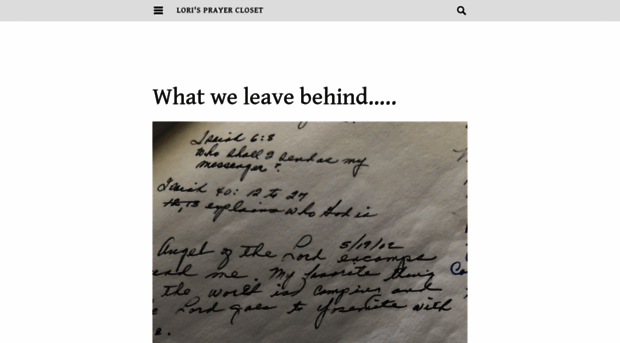 LORI'S PRAYER CLOSET
What we leave behind.....
Isaiah 6:8
Who shall I send as my
messenger?
Isaiah 40: 12 to 27
explains who God is
5/19/02
Angel of the Lord encamps
me. My favorite thing
the world is camping and
Lord goes to Yosemite with